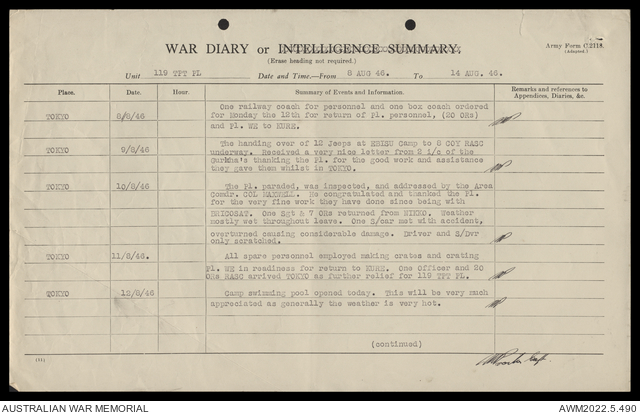 WAR DIARY or INTELLIGENCE SUMMARY.
(Erase heading not required.)
Army Form C.2118.
(Adapted.)
Unit 119 TPT PL Date and Time.—From 8 AUG 46. To 14 AUG. 46.
Place. Date. Hour. Summary of Events and Information. Remarks and references to
Appendices, Diaries, &c.
TOKYO 8/8/46 One railway coach for personnel and one box coach ordered
for Monday the 12th for return of Pl. personnel, (20 ORs)
and Pl. WE to KURE.
TOKYO 9/8/46 The handing over of 12 Jeeps at EBISU Camp to 8 COY RASC
underway. Received a very nice letter from 2 i/c of the
Gurkha's thanking the Pl. for the good work and assistance
they gave them whilst in TOKYO.
TOKYO 10/8/46 The Pl. paraded, was inspected, and addressed by the Area
Comdr. COL MAXWELL. He congratulated and thanked the Pl.
for the very fine work they have done since being with
BRICOSAT. One Sgt & 7 ORs returned from NIKKO. Weather
mostly wet throughout leave. One S/car met with accident,
overturned causing considerable damage. Driver and S/Dvr
only scratched.
TOKYO 11/8/46. All spare personnel employed making crates and crating
Pl. WE in readiness for return to KURE. One Officer and 20
ORs RASC arrived TOKYO as further relief for 119 TPT PL.
TOKYO 12/8/46 Camp swimming pool opened today. This will be very much
appreciated as generally the weather is very hot.
(continued)
AUSTRALIAN WAR MEMORIAL AWM2022.5.490